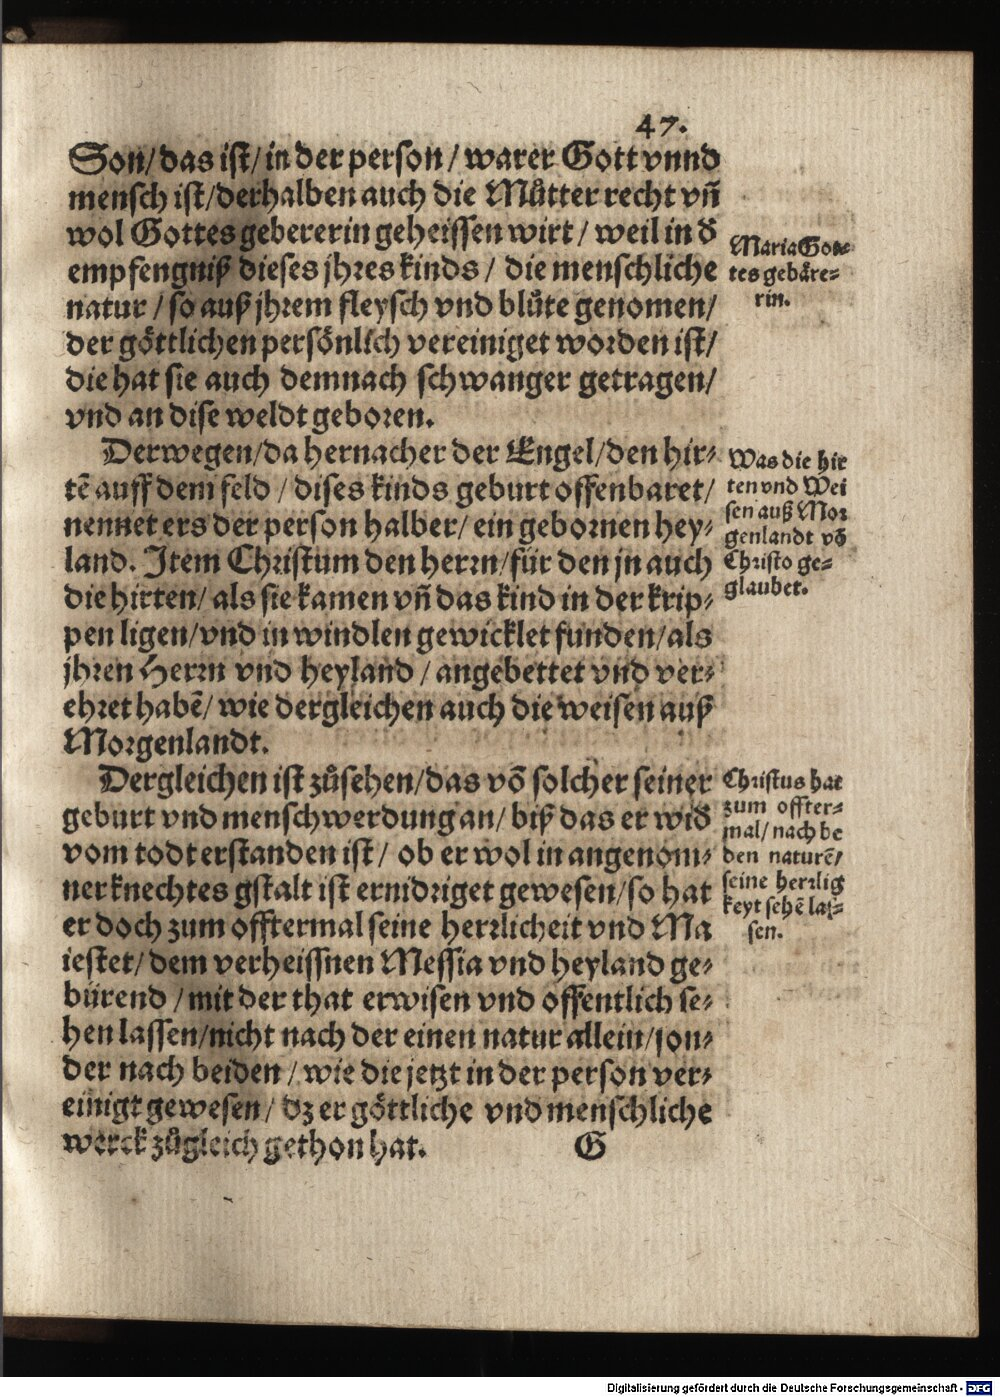 47.
Son/das ist/in der person/warer Gott vnnd
mensch ist/derhalben auch die Můtter recht vñ
wol Gottes gebererin geheissen wirt/weil in d̕
empfengniß dieses jhres kinds/die menschliche
natur/so auß jhrem fleysch vnd blůte genomen/
der göttlichen persönlich vereiniget worden ist/
die hat sie auch demnach schwanger getragen/
vnd an dise weldt geboren.
Maria Got-
tes gebäre-
rin.
Derwegen/da hernacher der Engel/den hir-
tē auff dem feld/dises kinds geburt offenbaret/
nennet ers der person halber/ein gebornen hey-
land. Item Christum den herrn/für den jn auch
die hirten/als sie kamen vñ das kind in der krip-
pen ligen/vnd in windlen gewicklet funden/als
jhren Herrn vnd heyland/angebettet vnd ver-
ehret habē/wie dergleichen auch die weisen auß
Morgenlandt.
Was die hir
ten vnd Wei
sen auß Mor
genlandt vō
Christo ge-
glaubet.
Dergleichen ist zůsehen/das vō solcher seiner
geburt vnd menschwerdung an/biß das er wid̕
vom todt erstanden ist/ob er wol in angenom-
ner knechtes gstalt ist ernidriget gewesen/so hat
er doch zum offtermal seine herrlicheit vnd Ma
iestet/dem verheissnen Messia vnd heyland ge-
bürend/mit der that erwisen vnd offentlich se-
hen lassen/nicht nach der einen natur allein/son-
der nach beiden/wie die jetzt in der person ver-
einigt gewesen/dz er göttliche vnd menschliche
werck zůgleich gethon hat.
G
Christus hat
zum offter-
mal/nach be
den naturē/
seine herrlig
keyt sehē las-
sen.
Digitalisierung gefördert durch die Deutsche Forschungsgemeinschaft - DFG